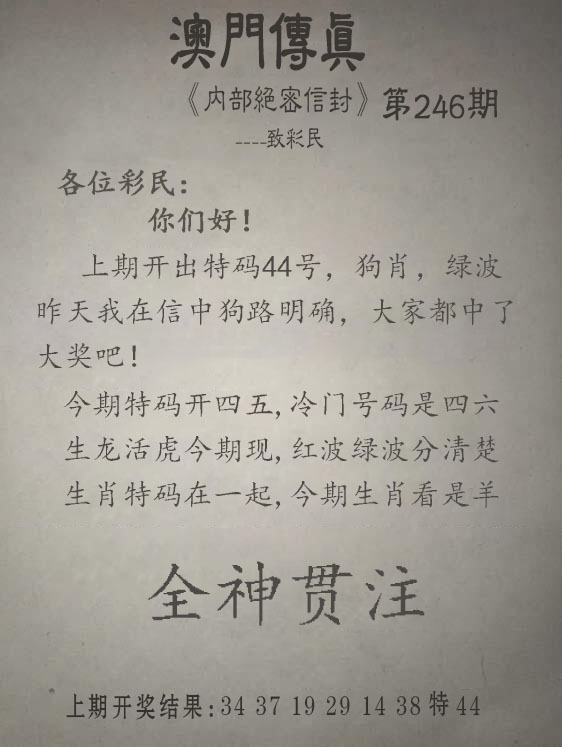 澳門傳眞
《内部絕密信封》第246期
----致彩民
各位彩民：
你们好！
上期开出特码44号，狗肖，绿波
昨天我在信中狗路明确，大家都中了
大奖吧！
今期特码开四五,冷门号码是四六
生龙活虎今期现,红波绿波分清楚
生肖特码在一起,今期生肖看是羊
全神贯注
上期开奖结果:34 37 19 29 14 38 特 44